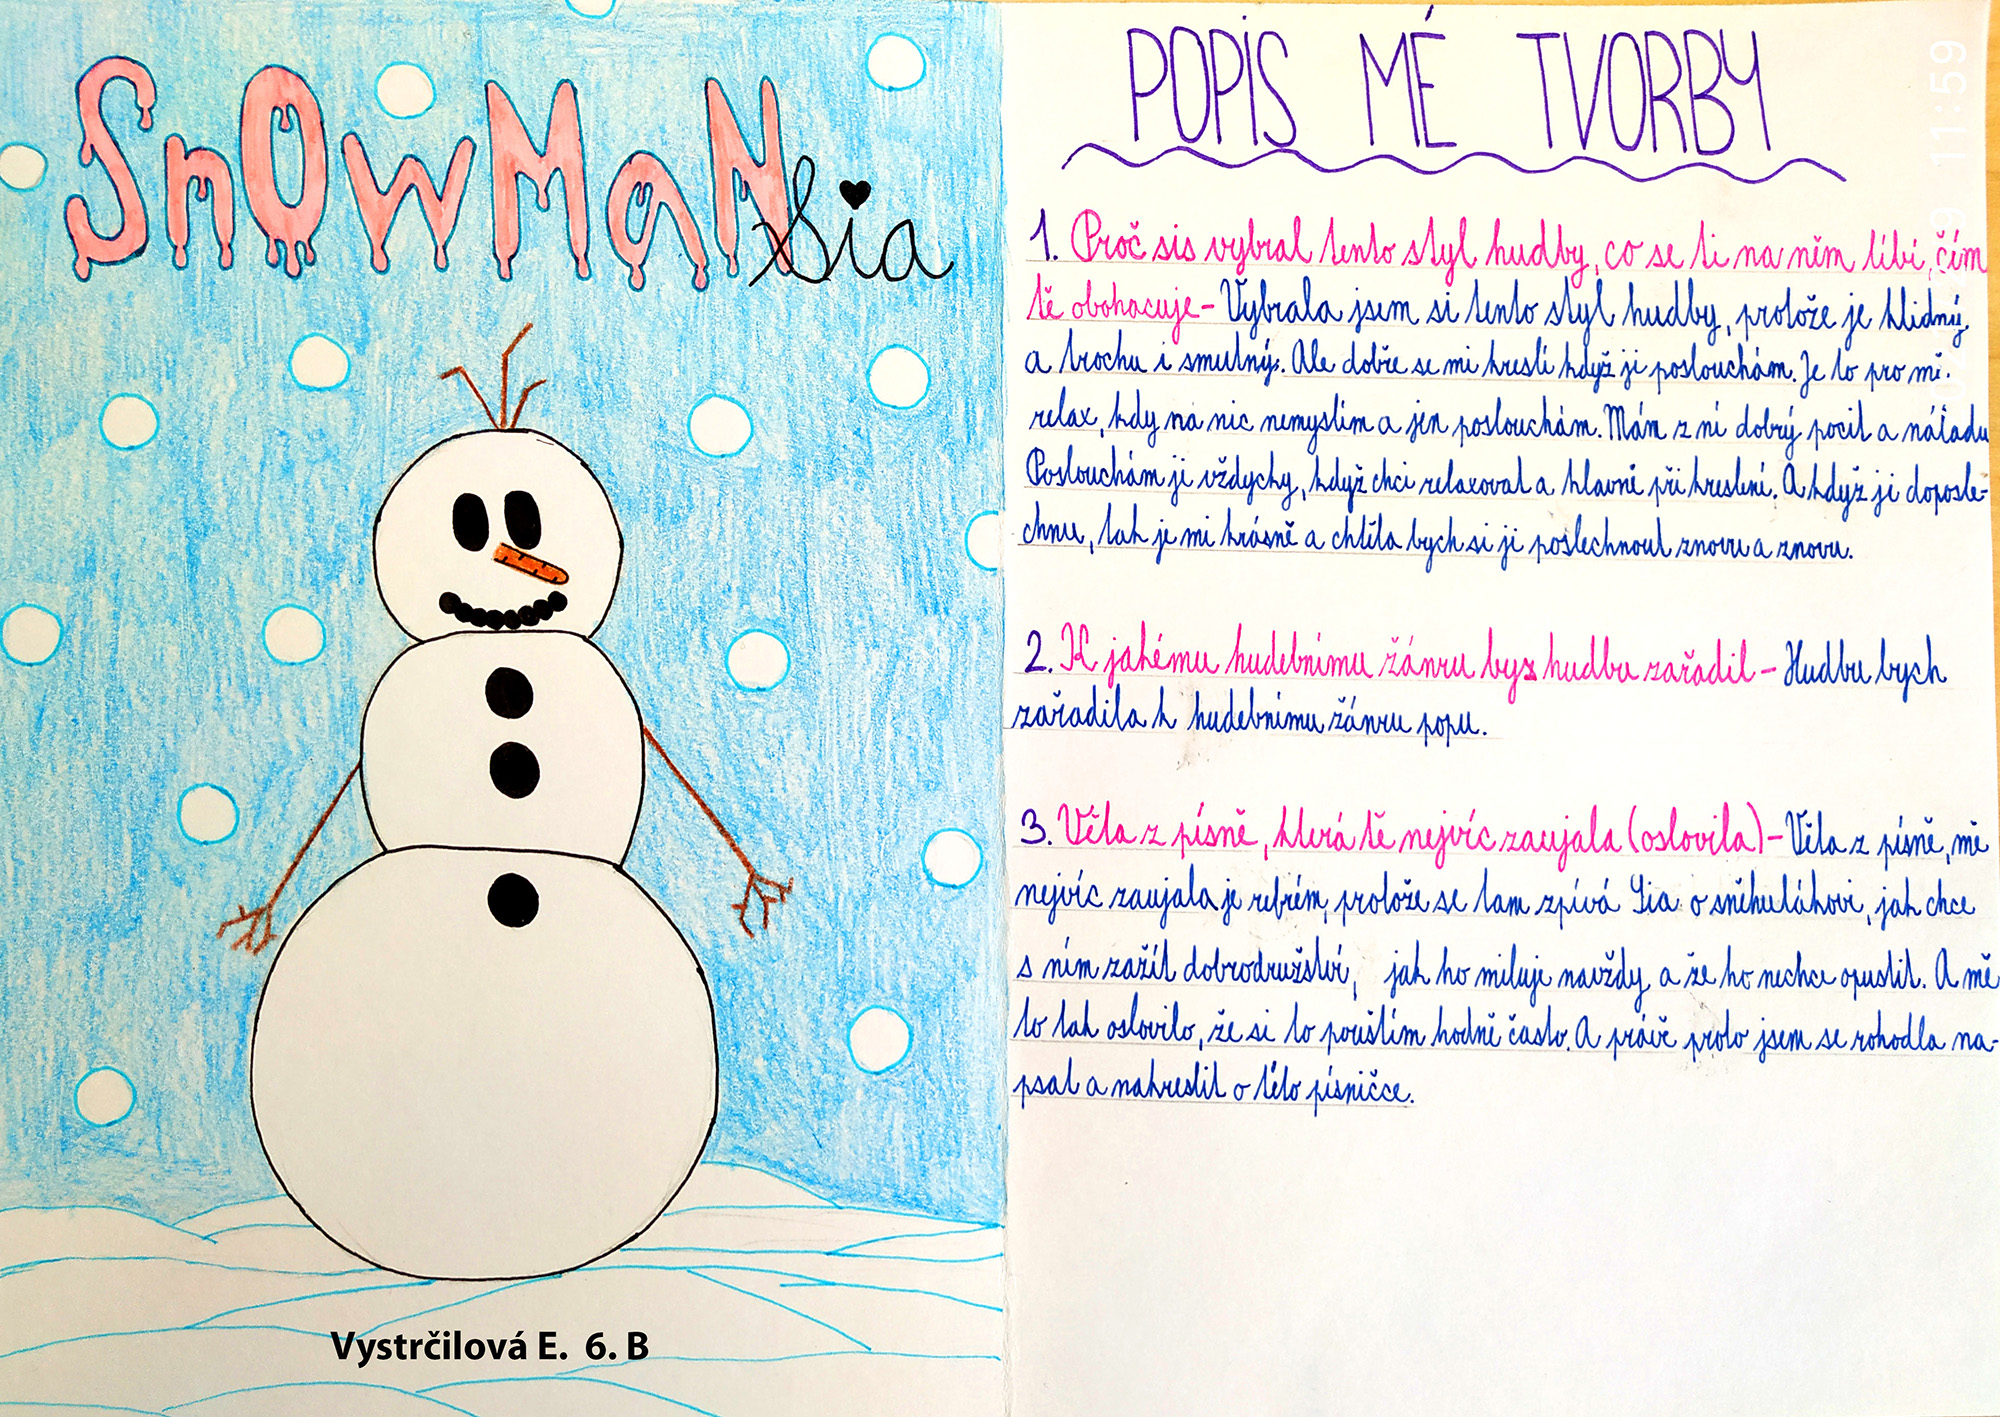 SnOwMaN
Sia
Vystrčilová E. 6. B
POPIS MÉ TVORBY
1. Proč sis vybral tento styl hudby, co se ti na něm líbí, čím
tě obohacuje - Vybrala jsem si tento styl hudby, protože je klidný
a trochu i smutný. Ale dobře se mi kreslí když ji poslouchám. Je to pro mě
relax, kdy na nic nemyslím a jen poslouchám. Mám z ní dobrý pocit a náladu
Poslouchám ji vždycky, když chci relaxovat a hlavně při kreslení. A když ji doposle-
chnu, tak je mi krásně a chtěla bych si ji poslechnout znovu a znovu.
2. K jakému hudebnímu žánru bys hudbu zařadil - Hudbu bych
zařadila k hudebnímu žánru popu.
3. Věta z písně, která tě nejvíc zaujala (oslovila) - Věta z písně, mě
nejvíc zaujala je refrém, protože se tam zpívá Sia o sněhulákovi, jak chce
s ním zažít dobrodružství, jak ho miluje navždy a že ho nechce opustit. A mě
to tak oslovilo, že si to pouštím hodně často. A právě proto jsem se rohodla na-
psat a nakreslit o této písničce.
11:59